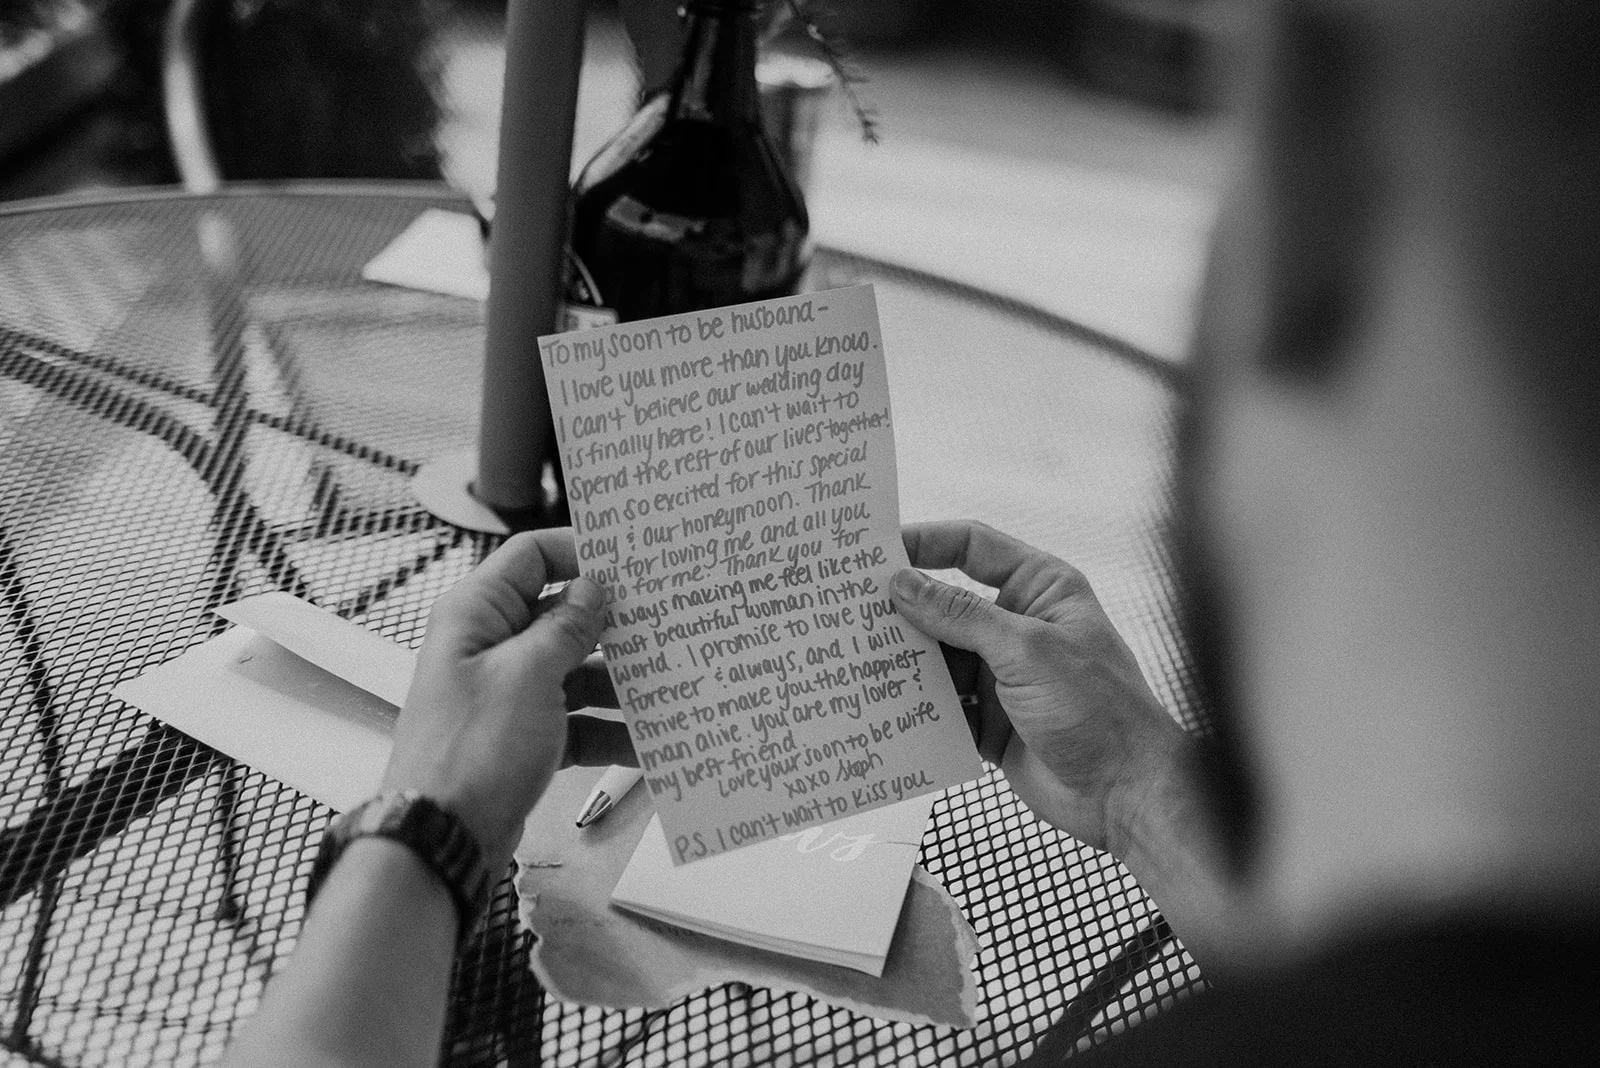 To my soon to be husband-
I love you more than you know.
I can't believe our wedding day
is finally here! I can't wait to
spend the rest of our lives together!
I am so excited for this special
day & our honeymoon. Thank
you for loving me and all you
do for me. Thank you for
always making me feel like the
most beautiful woman in the
world. I promise to love you
forever & always, and I will
strive to make you the happiest
man alive. You are my lover &
my best friend.
Love your soon to be wife
xoxo Steph
P.S. I can't wait to kiss you